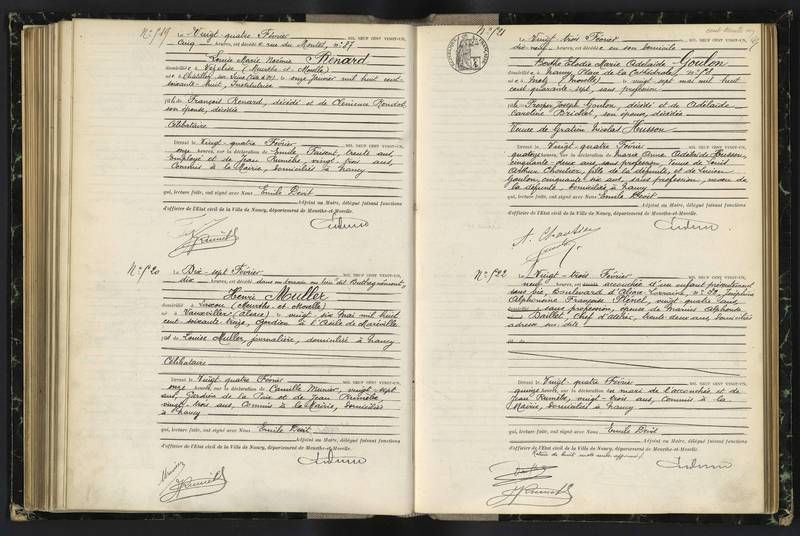 N° 519 Le Vingt-quatre Février MIL NEUF CENT VINGT-UN,
cinq heures, est décédé e rue du Montet, n° 87
Louise Marie Noémie Renard
domicilié e à Vézelise (Meurthe et Moselle)
né e à Châtillon sur Seine (Côte d'or) le onze Janvier mil huit cent
soixante-huit, Institutrice
fille de François Renard, décédé et de Clémence Rondot
son épouse, décédée
Célibataire
Dressé le Vingt quatre Février MIL NEUF CENT VINGT-UN,
onze heures, sur la déclaration de Emile Paisent, trente ans,
Employé et de Jean Rumèbe, vingt-trois ans
Commis à la Mairie, domiciliés à Nancy
qui, lecture faite, ont signé avec Nous Emile Devit
Adjoint au Maire, délégué faisant fonctions
d'officier de l'Etat civil de la Ville de Nancy, département de Meurthe-et-Moselle.
N° 520 Le Dix-sept Février MIL NEUF CENT VINGT-UN,
dix heures, est décédé dans un terrain au lieu dit Buthegnémont,
Henri Muller
domicilié à Laxou (Meurthe-et-Moselle)
né à (Alsace) le vingt-six mai mil huit
cent soixante treize, Gardien à l'Asile de Maréville
fils de Louise Muller, journalière, domiciliée à Nancy
Célibataire
Dressé le Vingt quatre Février MIL NEUF CENT VINGT-UN,
onze heures, sur la déclaration de Camille Munier, vingt-sept
ans, Gardien de la Paix et de Jean Rumèbe,
vingt-trois ans, Commis à la Mairie, domiciliés
à Nancy
qui, lecture faite, ont signé avec Nous Emile Devit
Adjoint au Maire, délégué faisant fonctions
d'officier de l'Etat civil de la Ville de Nancy, département de Meurthe-et-Moselle.
Munier
N° 521 Le Vingt trois Février MIL NEUF CENT VINGT-UN,
dix neuf heures, est décédé e en son domicile
Elodie Marie Adélaïde Goulon
domiciliée à Nancy, Place de la Cathédrale, n°
né e à Metz (Moselle) le vingt sept mai mil huit
cent quarante-sept, sans profession
fille de Prosper Joseph Goulon, décédé et de Adélaïde
Caroline Bridier, son épouse, décédée
Veuve de Gratien Nicolas Husson
Dressé le Vingt quatre Février MIL NEUF CENT VINGT-UN,
quatorze heures, sur la déclaration de Marie Anne Adélaïde Husson,
cinquante-deux ans sans profession, Veuve de Louis
Arthur, fille de la défunte, et de Lucien
Goulon, cinquante six ans, sans profession, neveu de
la défunte, domiciliés à Nancy
qui, lecture faite, ont signé avec Nous Emile Devit
Adjoint au Maire, délégué faisant fonctions
d'officier de l'Etat civil de la Ville de Nancy, département de Meurthe-et-Moselle.
N° 522 Le Vingt-trois Février MIL NEUF CENT VINGT-UN,
neuf heures est accouchée d'un enfant présentement
sans vie, Boulevard d'Alsace-Lorraine, n° Joséphine
Alphonsine Françoise, vingt quatre ans
domiciliée sans profession, épouse de Marius Alphonse
Baillet, Chef d'atelier, trente deux ans, domiciliés
adresse sus dite
Dressé le Vingt-quatre Février MIL NEUF CENT VINGT-UN,
quinze heures, sur la déclaration du mari de l'accouchée et de
Jean Rumèbe, vingt-trois ans, commis à la
Mairie, domiciliés à Nancy
qui, lecture faite, ont signé avec Nous Emile Devit
Adjoint au Maire, délégué faisant fonctions
d'officier de l'Etat civil de la Ville de Nancy, département de Meurthe-et-Moselle.